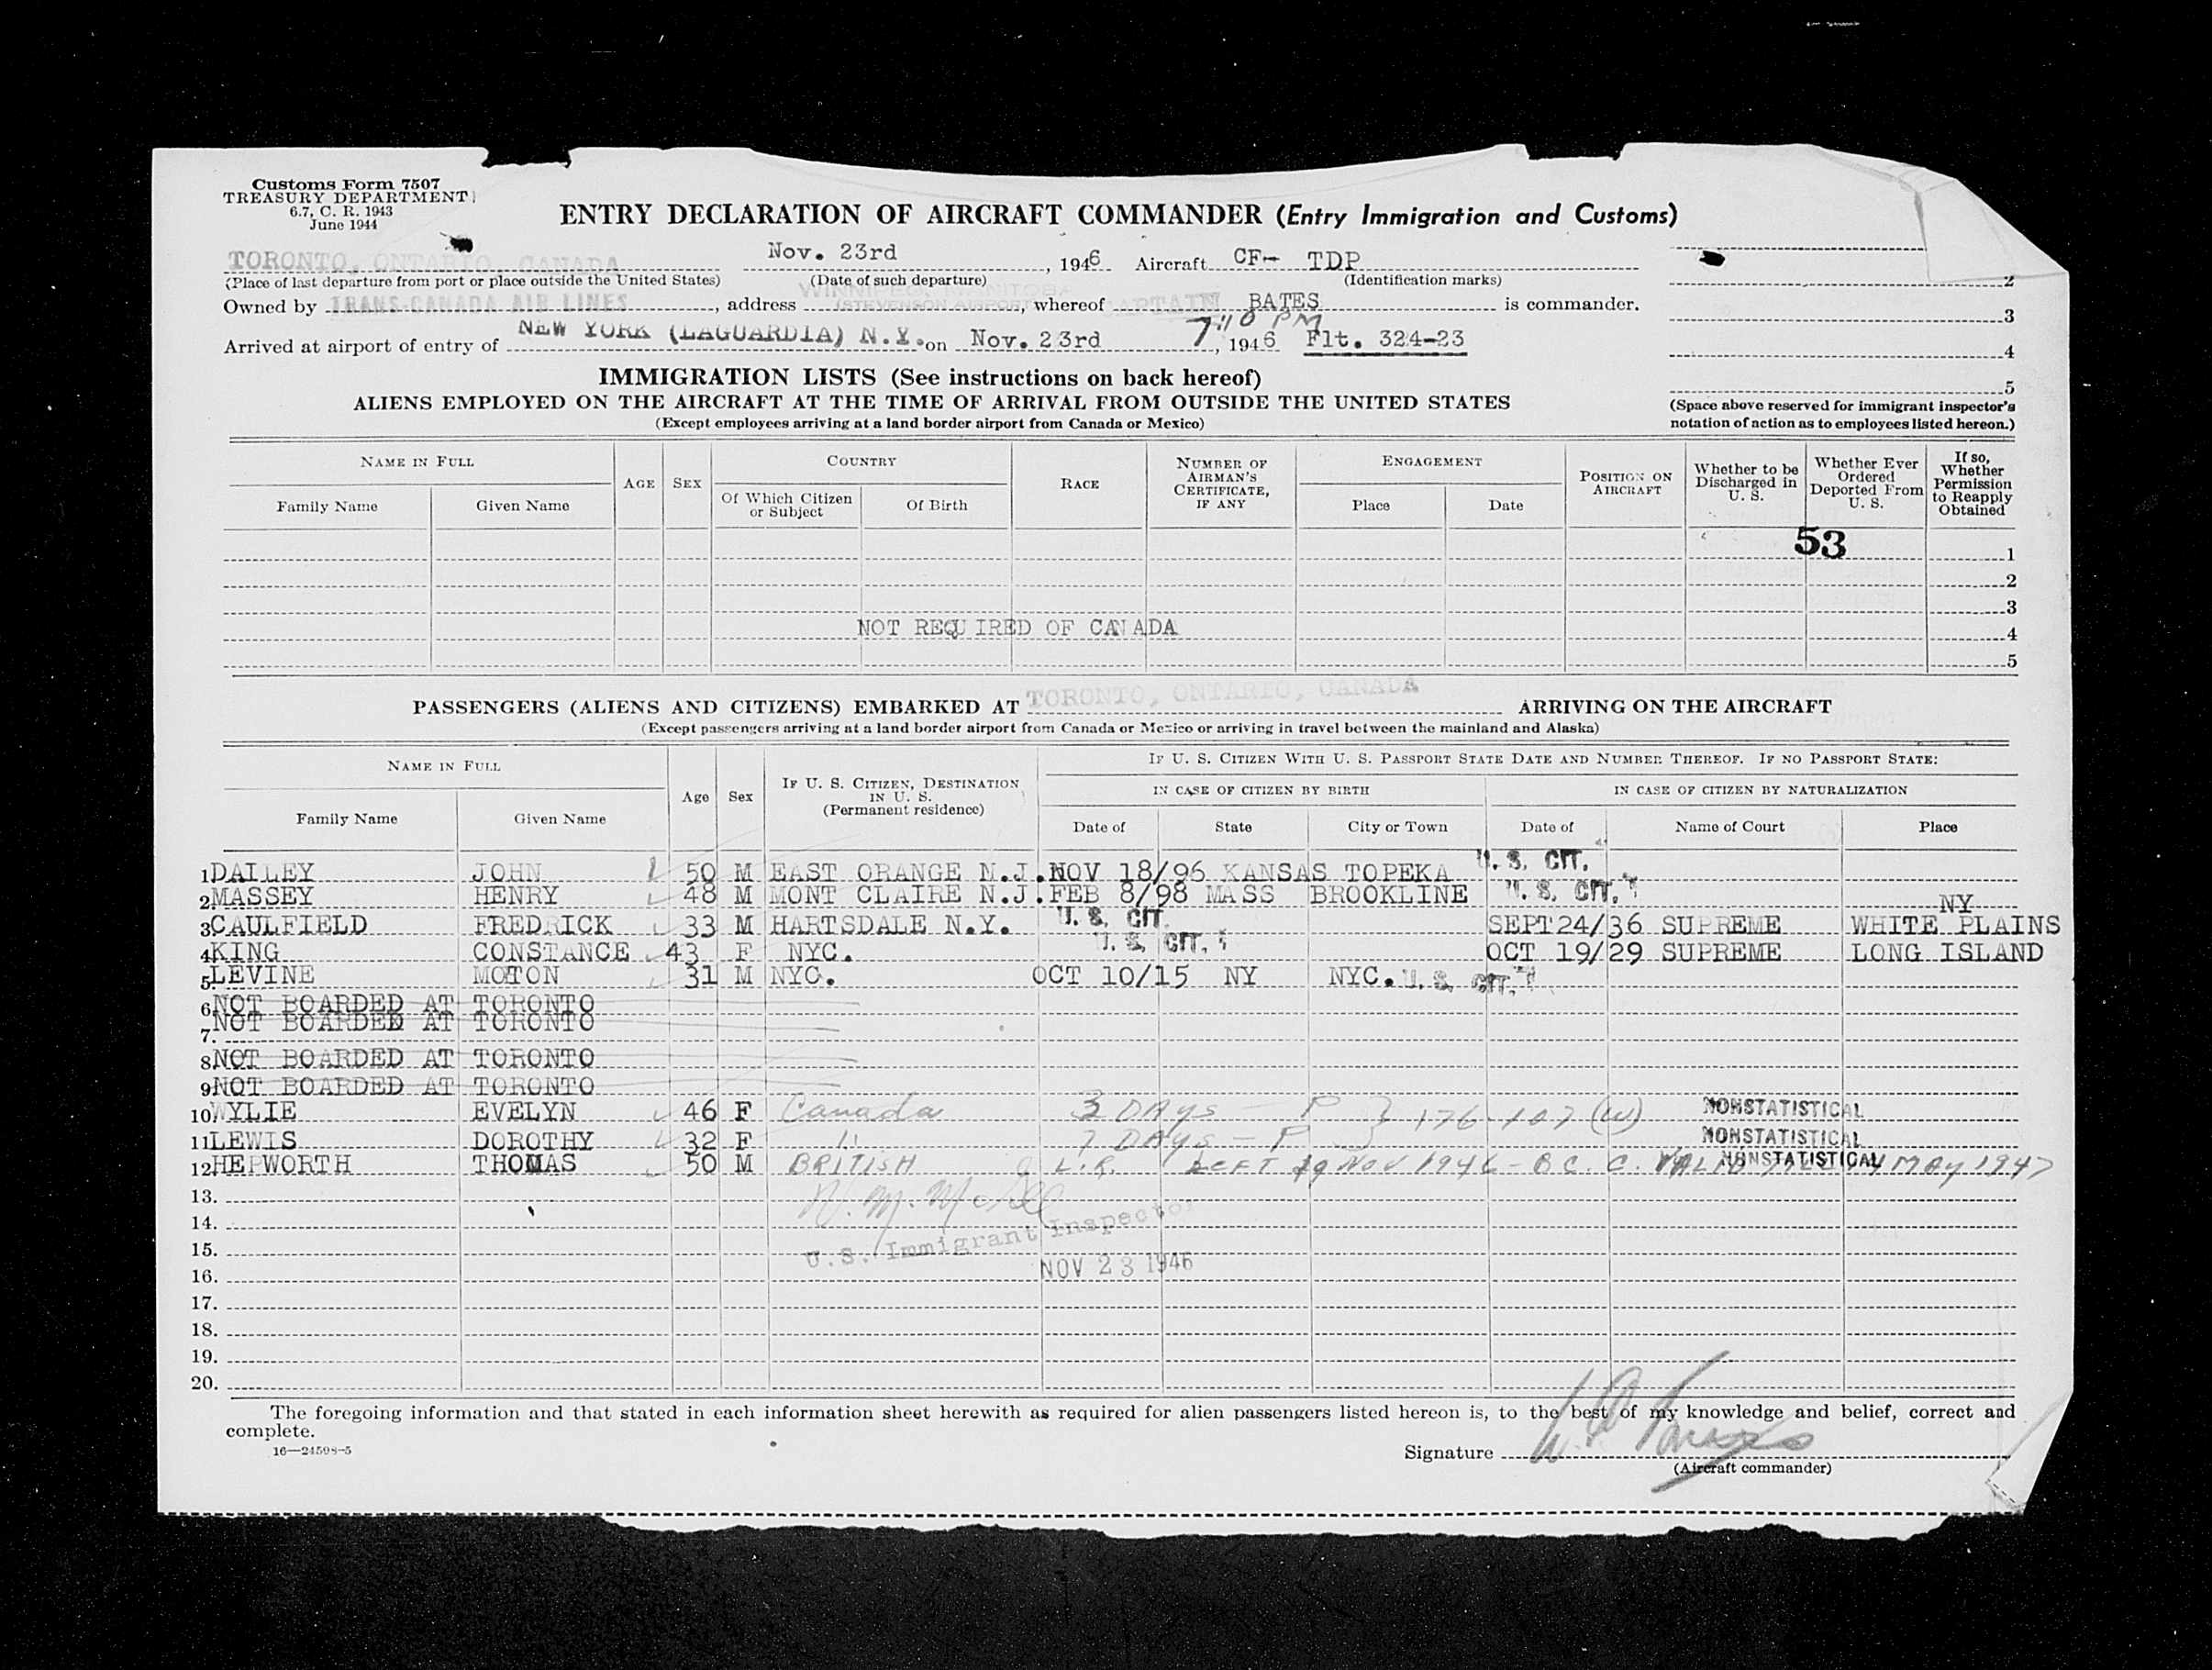 Customs Form 7507
TREASURY DEPARTMENT
6.7, C. R. 1943
June 1944
ENTRY DECLARATION OF AIRCRAFT COMMANDER (Entry Immigration and Customs)
TORONTO, ONTARIO, CANADA Nov. 23rd, 1946 Aircraft CF- TDP
(Place of last departure from port or place outside the United States) (Date of such departure) (Identification marks)
2
Owned by TRANS-CANADA AIR LINES, address WINNIPEG, MANITOBA (STEVENSON AIRPORT), whereof CAPTAIN BATES is commander.
3
7:10 PM
Arrived at airport of entry of NEW YORK (LAGUARDIA) N.Y. on Nov. 23rd, 1946 Flt. 324-23
4
IMMIGRATION LISTS (See instructions on back hereof)
5
ALIENS EMPLOYED ON THE AIRCRAFT AT THE TIME OF ARRIVAL FROM OUTSIDE THE UNITED STATES
(Except employees arriving at a land border airport from Canada or Mexico)
(Space above reserved for immigrant inspector's
notation of action as to employees listed hereon.)
NAME IN FULL AGE SEX COUNTRY RACE NUMBER OF AIRMAN'S CERTIFICATE, IF ANY ENGAGEMENT POSITION ON AIRCRAFT Whether to be Discharged in U. S. Whether Ever Ordered Deported From U. S. If so, Whether Permission to Reapply Obtained
Family Name Given Name Of Which Citizen or Subject Of Birth Place Date
53
1
2
3
NOT REQUIRED OF CANADA 4
5
PASSENGERS (ALIENS AND CITIZENS) EMBARKED AT TORONTO, ONTARIO, CANADA ARRIVING ON THE AIRCRAFT
(Except passengers arriving at a land border airport from Canada or Mexico or arriving in travel between the mainland and Alaska)
NAME IN FULL Age Sex IF U. S. CITIZEN, DESTINATION IN U. S. (Permanent residence) IF U. S. CITIZEN WITH U. S. PASSPORT STATE DATE AND NUMBER THEREOF. IF NO PASSPORT STATE:
IN CASE OF CITIZEN BY BIRTH IN CASE OF CITIZEN BY NATURALIZATION
Family Name Given Name Date of State City or Town Date of Name of Court Place
1 DAILEY JOHN 50 M EAST ORANGE N.J. NOV 18/96 KANSAS TOPEKA U. S. CIT.
2 MASSEY HENRY 48 M MONT CLAIRE N.J. FEB 8/98 MASS BROOKLINE U. S. CIT.
3 CAULFIELD FREDRICK 33 M HARTSDALE N.Y. U. S. CIT. SEPT 24/36 SUPREME WHITE PLAINS NY
4 KING CONSTANCE 43 F NYC. U. S. CIT. OCT 19/29 SUPREME LONG ISLAND
5 LEVINE MOTON 31 M NYC. OCT 10/15 NY NYC. U. S. CIT.
6 NOT BOARDED AT TORONTO
7. NOT BOARDED AT TORONTO
8 NOT BOARDED AT TORONTO
9 NOT BOARDED AT TORONTO
10 WYLIE EVELYN 46 F Canada 3 DAYS - P } 176-107 (W) NONSTATISTICAL
11 LEWIS DOROTHY 32 F " 7 DAYS - P NONSTATISTICAL
12 HEPWORTH THOMAS 50 M BRITISH L.R. LEFT 19 NOV 1946 - B.C.C. VALID MAY 1947 NONSTATISTICAL
13.
14.
15. U.S. Immigrant Inspector
16. NOV 23 1946
17.
18.
19.
20.
The foregoing information and that stated in each information sheet herewith as required for alien passengers listed hereon is, to the best of my knowledge and belief, correct and
complete.
16—24598-5
Signature
(Aircraft commander)